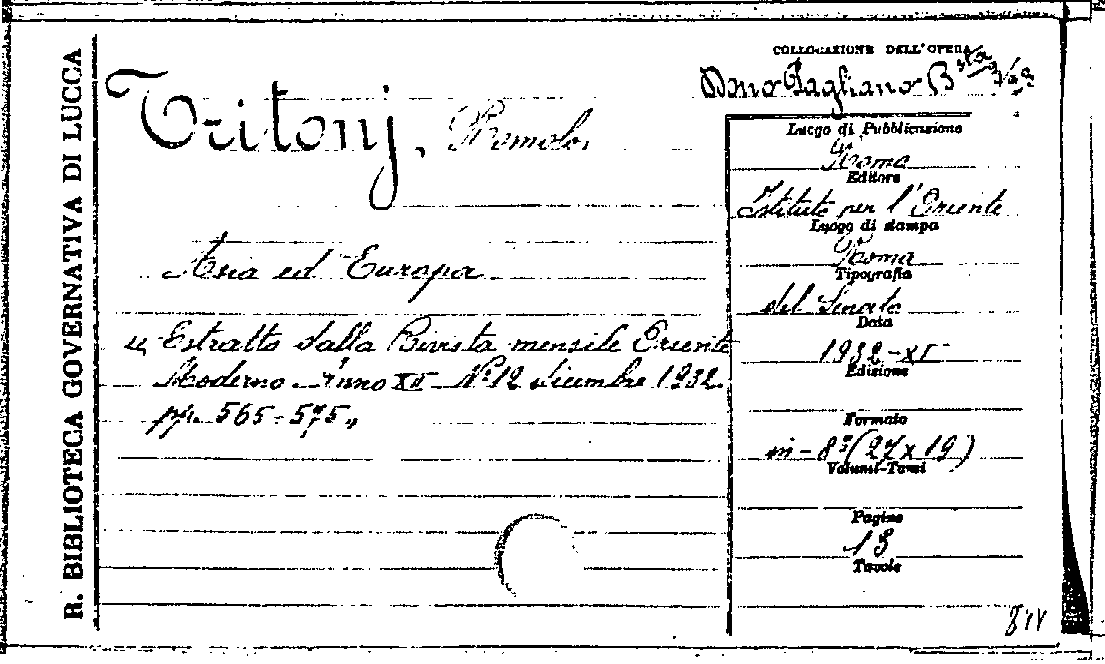 R. BIBLIOTECA GOVERNATIVA DI LUCCA
Tritonj, Romolo.
Asia ed Europa
"Estratto dalla Rivista mensile Oriente
Moderno - Anno XII - N.° 12 dicembre 1932.
pp. 565-575"
COLLOCAZIONE DELL'OPERA
Dono Pagliano B
Luogo di Pubblicazione
Roma
Editore
Istituto per l'Oriente
Luogo di stampa
Roma
Tipografia
del Senato
Data
1932-XI
Edizione
Formato
in-8° (27x19)
Volumi-Tomi
Pagine
13
Tavole